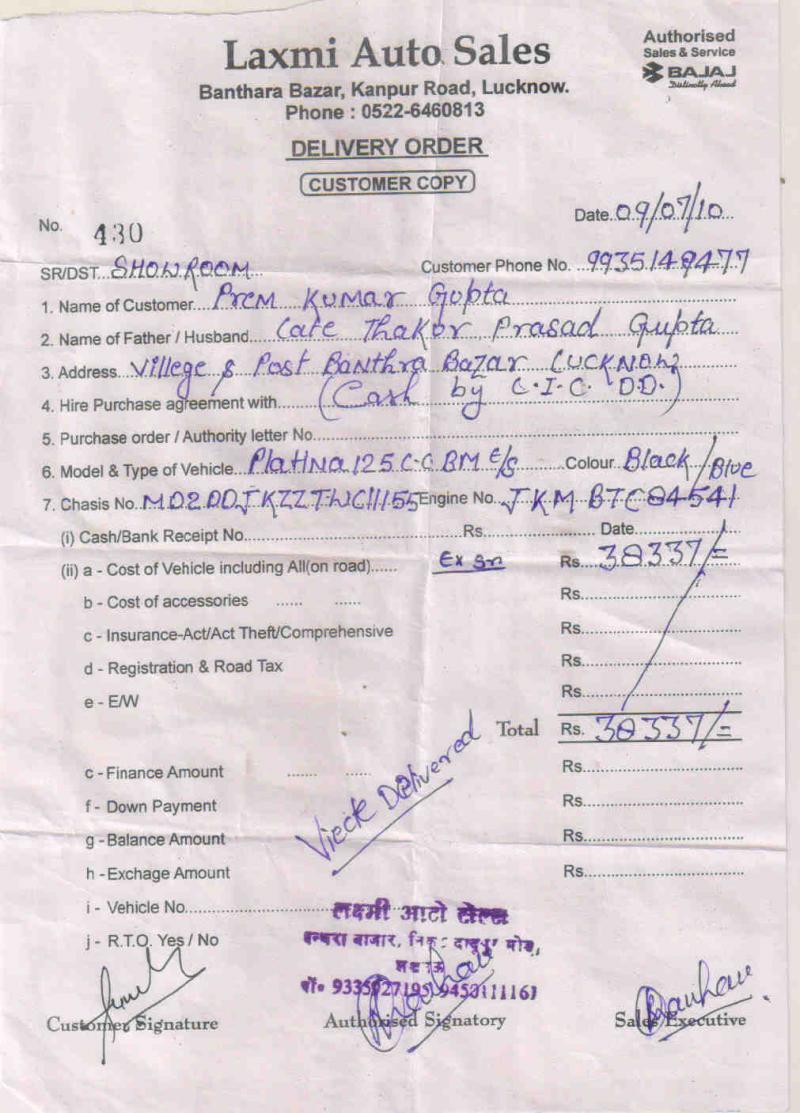 Laxmi Auto Sales
Authorised
Sales & Service
BAJAJ
Distinctly Ahead
Banthara Bazar, Kanpur Road, Lucknow.
Phone : 0522-6460813
DELIVERY ORDER
CUSTOMER COPY
No. 430
Date..09/07/10...
SR/DST..SHOWROOM... Customer Phone No. ...9935149477
1. Name of Customer...Prem Kumar Gupta
2. Name of Father / Husband....Late Thakur Prasad Gupta
3. Address...Villege & Post Banthra Bazar LUCKNOW
4. Hire Purchase agreement with.......(Cash by L.I.C. DD.)
5. Purchase order / Authority letter No.......
6. Model & Type of Vehicle..Platina 125 C.C BM E/S......Colour..Black/Blue
7. Chasis No..MD2DDJKZZTWC11155 Engine No...JKMBTC84541
(i) Cash/Bank Receipt No.......Rs.......Date.......
(ii) a - Cost of Vehicle including All(on road)...... Ex Sn Rs...38337/=
b - Cost of accessories ...... ...... Rs.......
c - Insurance-Act/Act Theft/Comprehensive Rs.......
d - Registration & Road Tax Rs.......
e - E/W Rs.......
Total Rs. 38337/=
c - Finance Amount ...... ...... Rs.......
f - Down Payment Rs.......
Vieck Delivered
g - Balance Amount Rs.......
h - Exchage Amount Rs.......
i - Vehicle No.......
लक्ष्मी आटो सेल्स
j - R.T.O. Yes / No
बन्थरा बाजार, निकट दादूपुर मोड़,
लखनऊ
Customer Signature
Authorised Signatory
Sales Executive